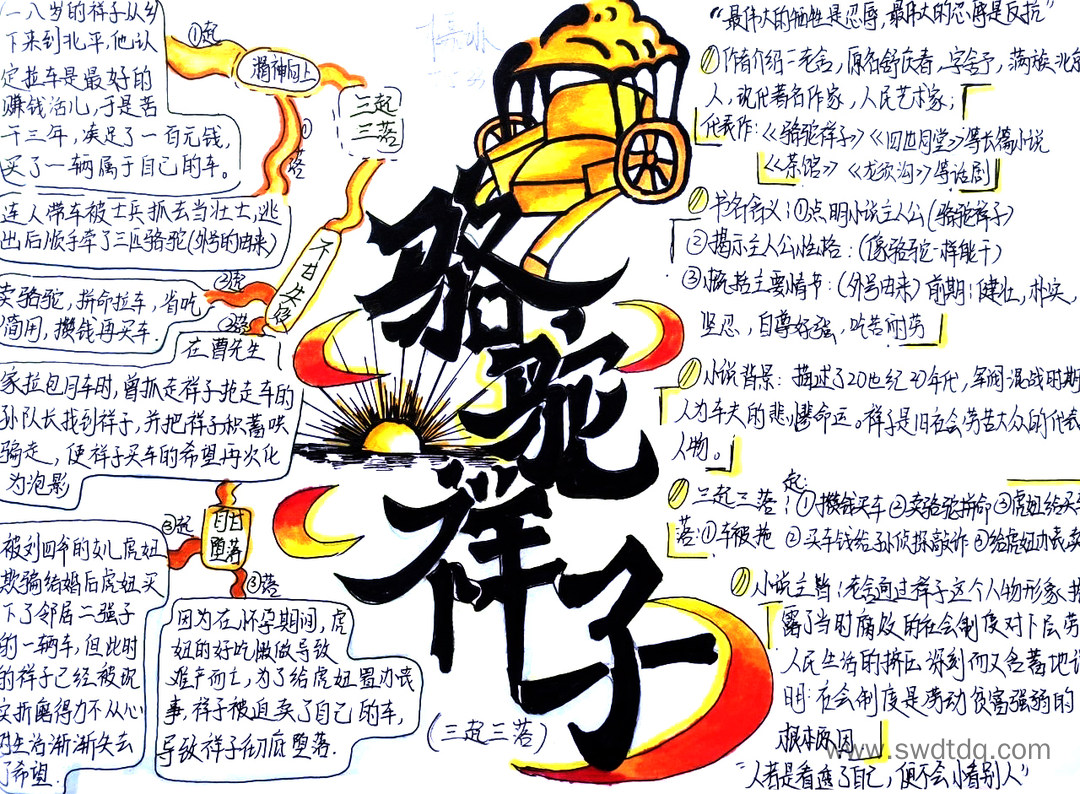 一八岁的祥子从乡
下来到北平,他认
定拉车是最好的
赚钱活儿,于是苦
干三年,凑足了一百元钱,
买了一辆属于自己的车。
①起
精神向上
三起
三落
①落
连人带车被士兵抓去当壮士,逃
出后顺手牵了三匹骆驼(外号的由来)
不甘失败
②起
卖骆驼,拼命拉车,省吃
俭用,攒钱再买车
②落
在曹先生
家拉包月车时,曾抓走祥子抢走车的
孙队长找到祥子,并把祥子积蓄哄
骗走,使祥子买车的希望再次化
为泡影
③起
自甘
堕落
③落
被刘四爷的女儿虎妞
欺骗结婚后虎妞买
下了邻居二强子
的一辆车,但此时
的祥子已经被现
实折磨得力不从心
对生活渐渐失去
了希望.
因为在怀孕期间,虎
妞的好吃懒做导致
难产而亡,为了给虎妞置办丧
事,祥子被迫卖了自己的车,
导致祥子彻底堕落.
骆驼祥子
(三起三落)
“最伟大的牺牲是忍辱,最伟大的忍辱是反抗”
作者介绍:老舍,原名舒庆春,字舍予,满族,北京
人,现代著名作家,人民艺术家;
代表作:《骆驼祥子》《四世同堂》等长篇小说
《茶馆》《龙须沟》等话剧
书名含义:①点明小说主人公(骆驼祥子)
②揭示主人公性格:(像骆驼一样能干)
③概括主要情节:(外号由来)前期:健壮,朴实,
坚忍,自尊好强,吃苦耐劳
小说背景:描述了20世纪20年代,军阀混战时期
人力车夫的悲惨命运。祥子是旧社会劳苦大众的代表
人物。
三起三落:起:①攒钱买车②卖骆驼拼命③虎妞给买车
落:①车被抢 ②买车钱给孙侦探敲诈③给虎妞办丧卖
小说主旨:老舍通过祥子这个人物形象,揭
露了当时腐败的社会制度对下层劳
人民生活的挤压深刻而又含蓄地说
明:社会制度是劳动负富强弱的
根本原因
www.swdtdq.com
“人若是看透了自己,便不会小看别人”